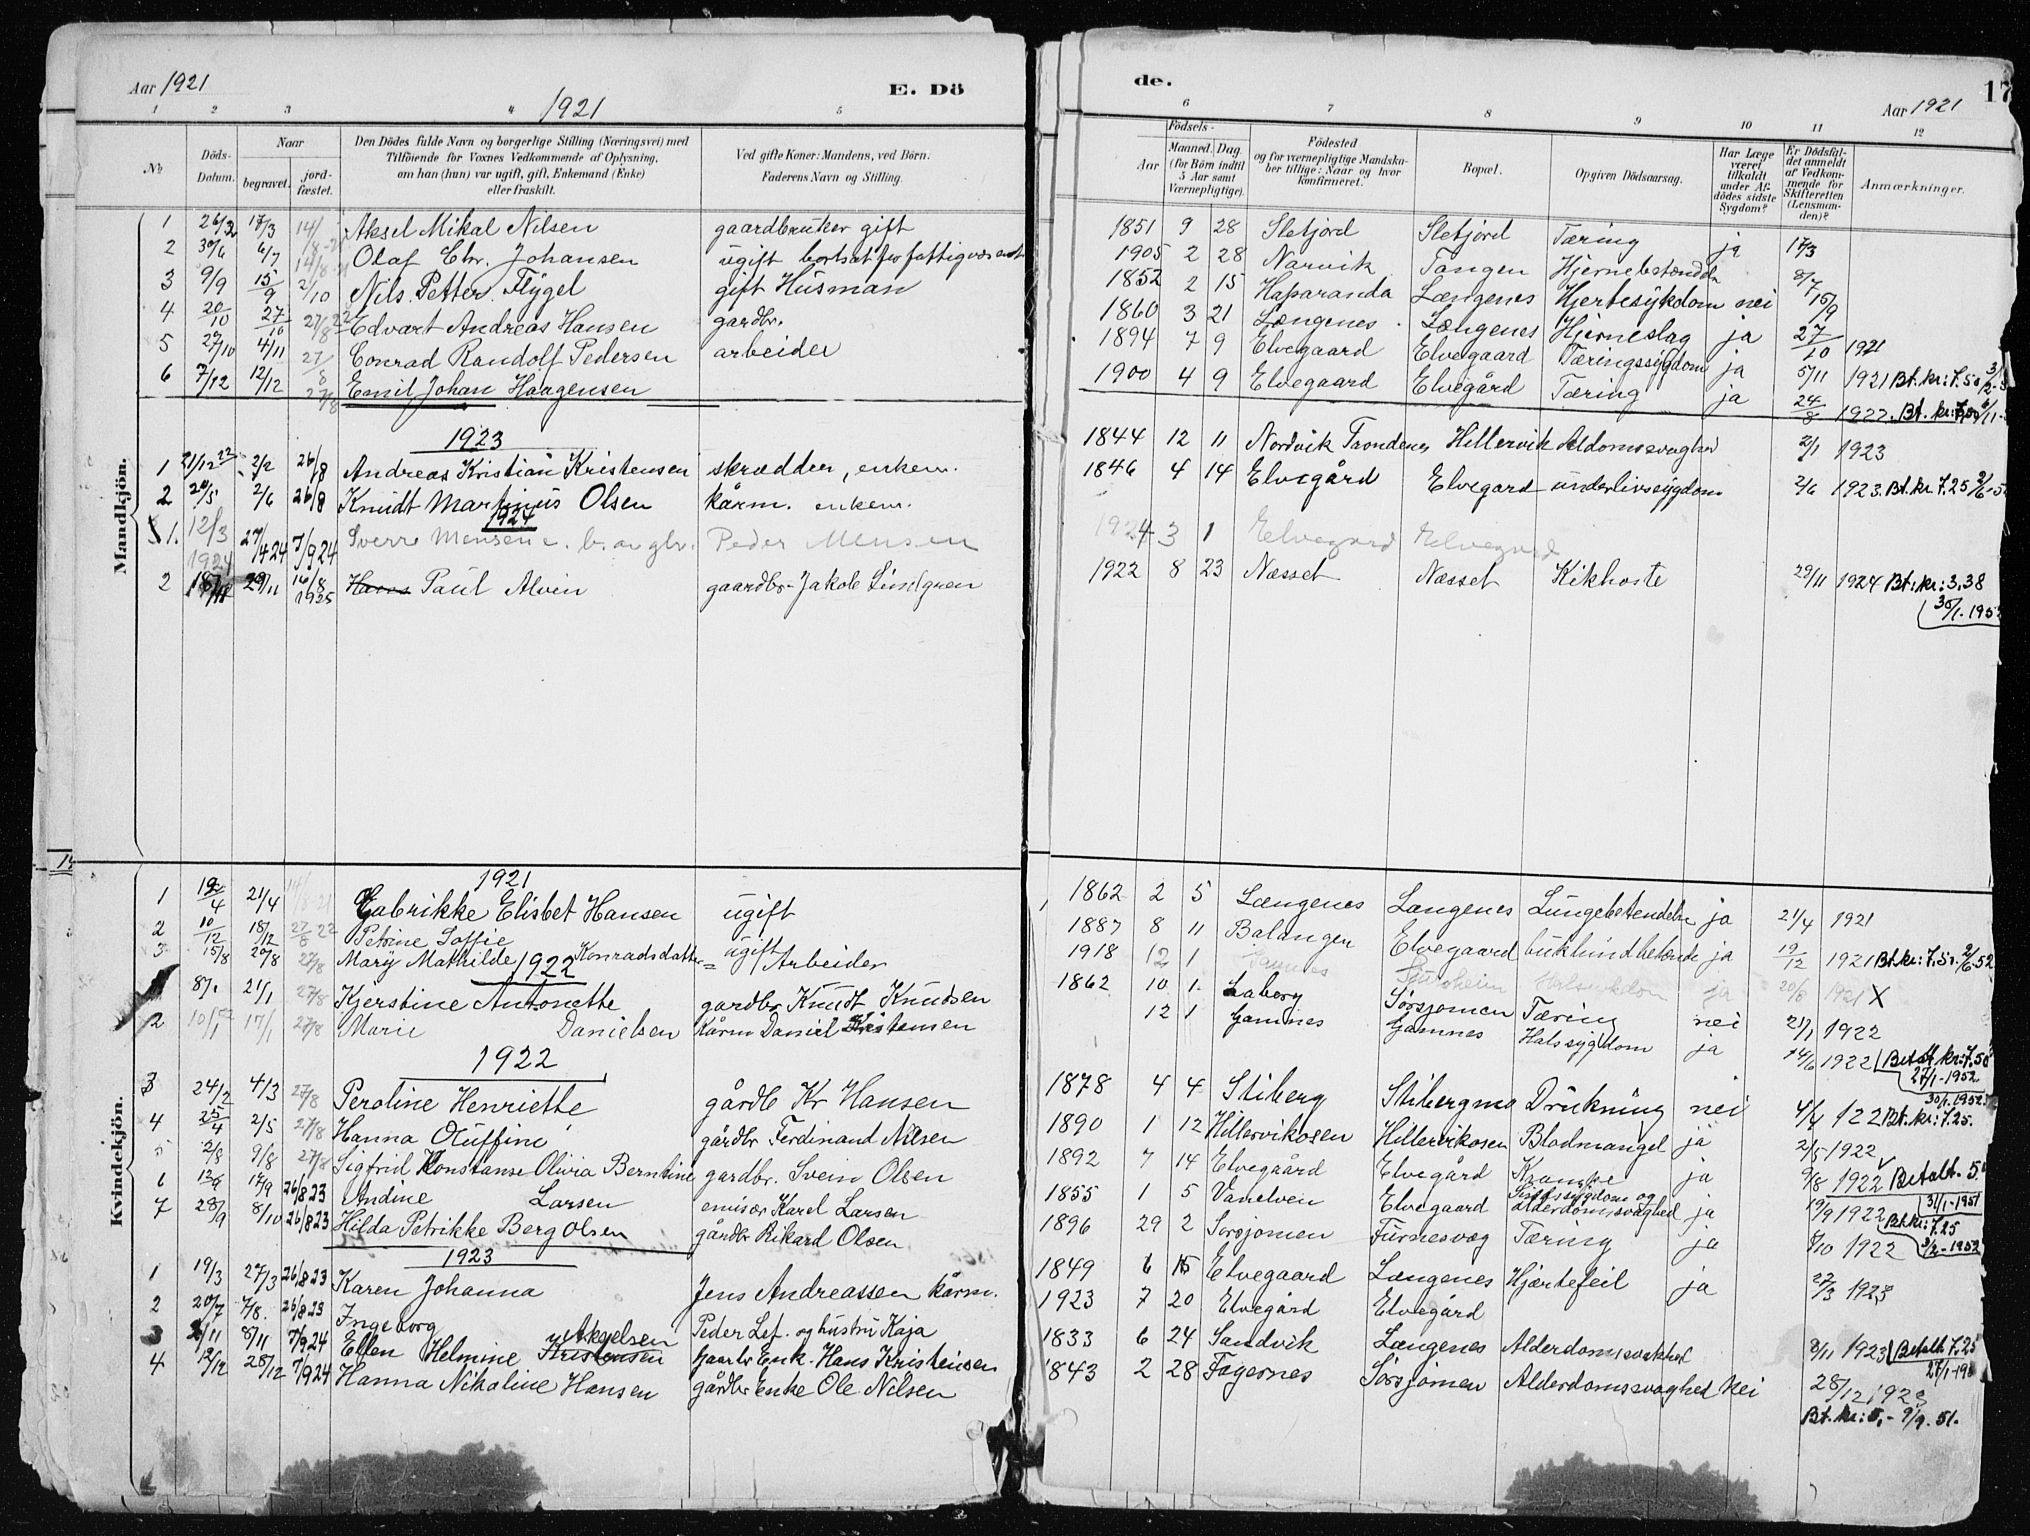 Aar 1921
E. Dö
de.
17
Aar 1921
1 2 3 4 5 6 7 8 9 10 11 12
1921
No
Döds-Datum.
Naar
begravet. jord-fæstet.
Den Dödes fulde Navn og borgerlige Stilling (Næringsvei) med
Tilföiende for Voxnes Vedkommende af Oplysning,
om han (hun) var ugift, gift, Enkemand (Enke)
eller fraskilt.
Ved gifte Koner: Mandens, ved Börn:
Faderens Navn og Stilling.
Födsels-
Aar Maaned. Dag.
(for Börn indtil
5 Aar samt
Værnepligtige).
Födested
og for værnepligtige Mandska-
ber tillige: Naar og hvor
konfirmeret.
Bopæl.
Opgiven Dödsaarsag.
Har Læge
været
tilkaldt
under Af-
dödes sidste
Sygdom?
Er Dödsfal-
det anmeldt
af Vedkom-
mende for
Skifteretten
(Lensman-
den)?
Anmærkninger.
Mandkjön.
1 26/2 17/3 14/8-21 Aksel Mikal Nilsen gaardbruker gift 1851 9 28 Sletjord Sletjord Tæring ja 17/3
2 30/6 6/7 14/8-21 Olaf Edv. Johansen ugift bortsat for fattigvæsenet 1905 2 28 Narvik Tangen Hjernebetændels 8/7
3 9/9 15/9 2/10 Nils Petter Flygel gift Husman 1852 2 15 Haparanda Længenes Hjertesykdom nei 15/9
4 20/10 27/10 27/8 22 Edvart Andreas Hansen gardbr. 1860 3 21 Længenes Længenes Hjerneslag ja 27/10 1921
5 27/10 4/11 27/8 Conrad Randolf Pedersen arbeider 1894 7 9 Elvegaard Elvegaard Tæringssygdom ja 5/11 1921 Bt. kr: 7.50
6 7/12 12/12 27/8 Emil Johan Haagensen 1900 4 9 Elvegaard Elvegård Tæring ja 24/8 1922. Bt. kr: 7,50
1923
1 21/12 22 2/2 26/8 Andreas Kristian Kristensen skrædder, enkem. 1844 12 11 Nordvik Trondenes Hillervik Aldomssvaghed 2/1 1923
2 20/5 2/6 26/8 Knudt Martinus Olsen kårm. enkem. 1846 4 14 Elvegård Elvegard underlivssygdom 2/6 1923. Bt. kr 7.25
1924
1. 12/3 1924 27/4 24 7/9 24 Sverre Monsen Peder Monsen 1924 3 1 Elvegaard Elvegaard
2 18/11 29/11 16/8 1925 Hans Paul Alvin gaardbr- Jakob Lindgren 1922 8 23 Næsset Næsset Kikhoste 29/11 1924 Bt. kr: 3.38
30/1.1952
Kvindekjön.
1921
1 12/4 21/4 14/8-21 Gabrikke Elisbet Hansen ugift 1862 2 5 Længenes Længenes Lungebetendelse ja 21/4 1921
2 10/12 18/12 27/8 22 Petrine Soffie ugift 1887 8 11 Balangen Elvegaard bukhindbetende ja 19/12 1921 Bt. kr: 7.50 2/6 52
3 15/8 20/8 27/8 Mary Mathilde Konradsdatter = Arbeider 1918 12 1 ja 20/8 1921 X
1922
8/1 21/1 27/8 Kjerstine Antonette gardbr Knudt Knudsen 1862 10 1. Laberg Sørsjomen Tæring nei 21/1 1922
2 10/1 17/1 27/8 Marie Danielsen Kårm Daniel Kristensen 12 1 Gamnes Gamnes Halssygdom ja 14/6 1922 Betalt kr: 7.50
27/1-1952
1922
3 24/2 4/3 27/8 Peroline Henriette gårdb Kr Hansen 1878 4 4 Stiberg Stibergmo Drukning nei 4/4 122 Bt. kr: 7.25.
30/1.1952
4 25/4 2/5 27/8 Hanna Oluffine gårdbr Ferdinand Nilsen 1890 1 12 Hillervikosen Hillervikosen Blodmangel ja 2/5 1922
5 2/8 9/8 27/8 Sigfrid Konstanse Olivia Berntine gardbr. Svein Olsen 1892 7 14 Elvegaård Elvegård Krampe ja 9/8 1922 Betalt. 5
31/1-1951
6 12/9 17/9 26/8 23 Andine Larsen emisær Karel Larsen 1855 1 5 Vanelven Elvegaard Sindssygdom og alderdomssvaghed ja 19/9 1922 Bt. kr: 7.25
3/2-1952
7 28/9 8/10 26/8 23 Hilda Petrikke Berg Olsen gårdbr Rikard Olsen 1896 29 2 Sørsjomen Furnesvæg Tæring ja 8/10 1922
1923
1 19/3 27/3 26/8 23 Karen Johanna Jens Andreassen kårm. 1849 6 15 Elvegaard Længenes Hjærtefeil ja 27/3 1923
2 20/7 7/8. 26/8 23 Ingeborg Peder Lef. og hustru Kaja 1923 7 20 Elvegård Elvegård
3 2/11 8/11 7/9 24 Ellen Helmine Kristensen Akselsen Gaarbr Enk. Hans Kristensen 1833 6 24 Sandvik Længenes Alderdomssvakhed 8/11 1923 Betalt 7.25
27/1-19
4 12/12 28/12 7/9 24 Hanna Nikoline Hansen gårdbr Enke Ole Nilsen 1843 2 28 Fagernes Sørsjomen Alderdomssvaghed Nei 28/12 1923
Bt. kr: 5,- 9/9. 51.